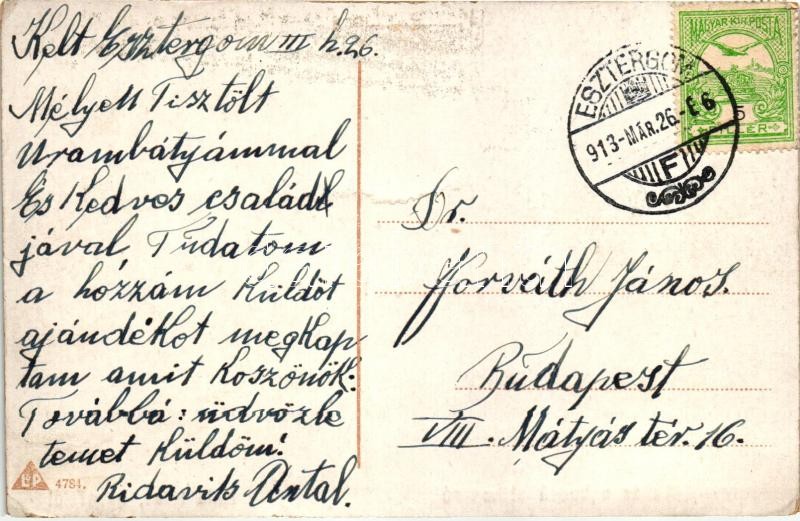 Kelt Esztergom III h. 26.
Mélyen Tisztölt
Urambátyámmal
És Kedves család
jával Tudatom
a hózzám Küldöt
ajándékot megkap
tam amit Koszönök.
Továbbá: üdvözle
temet Küldöm!
Ridavits Antal.
4784.
MAGYAR KIR. POSTA
ESZTERGOM
913-MÁR.26.-E6
F
Dr.
Horváth János.
Budapest
VIII. Mátyás tér. 16.